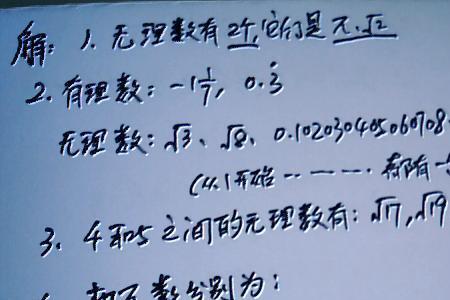 解: 1. 无理数有2个,它们是 π.√2
2. 有理数: -1 1/7, 0.3̇
无理数: √3、√8、0.102030405060708
(从1开始……
3. 4和5之间的无理数有: √17, √19
数分别为: